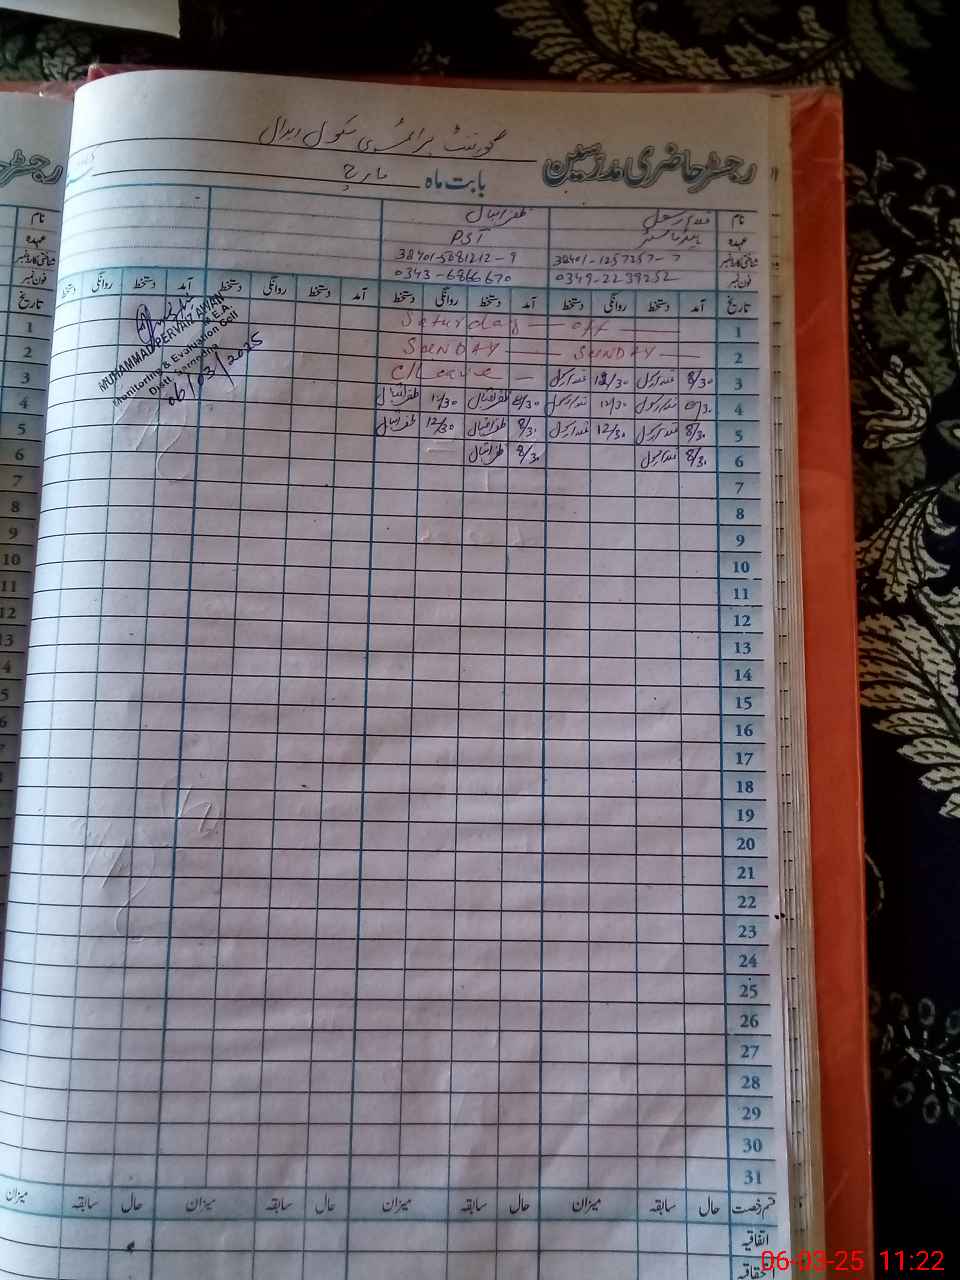 گورنمنٹ پرائمری سکول
رجسٹر حاضری مدرسین
بابت ماہ مارچ
نام ظفر اقبال
عہدہ ہیڈ ماسٹر PST
شناختی کارڈ نمبر 38401-1257257-7 38401-5081212-9
فون نمبر 0349-2239252 0343-6866670
تاریخ آمد دستخط روانگی دستخط آمد دستخط روانگی دستخط آمد دستخط روانگی دستخط آمد دستخط روانگی دستخط
1 Saturday — off —
2 SUNDAY — SUNDAY —
3 8/30 12/30 C/Leave —
4 8/30 12/30 8/30 ظفر اقبال 12/30 ظفر اقبال
5 8/30 12/30 8/30 ظفر اقبال 12/30 ظفر اقبال
6 8/30 8/30 ظفر اقبال
7
8
9
10
11
12
13
14
15
16
17
18
19
20
21
22
23
24
25
26
27
28
29
30
31
قسم رخصت حال سابقہ میزان حال سابقہ میزان حال سابقہ میزان حال سابقہ میزان
اتفاقیہ
MUHAMMAD PERVAIZ AWAN
M.E.A
Monitoring & Evaluation Cell
Distt. Sargodha
06/03/2025
رجسٹر
نام
عہدہ
شناختی کارڈ نمبر
فون نمبر
تاریخ
1
2
3
4
5
6
7
8
9
10
11
12
13
06-03-25 11:22